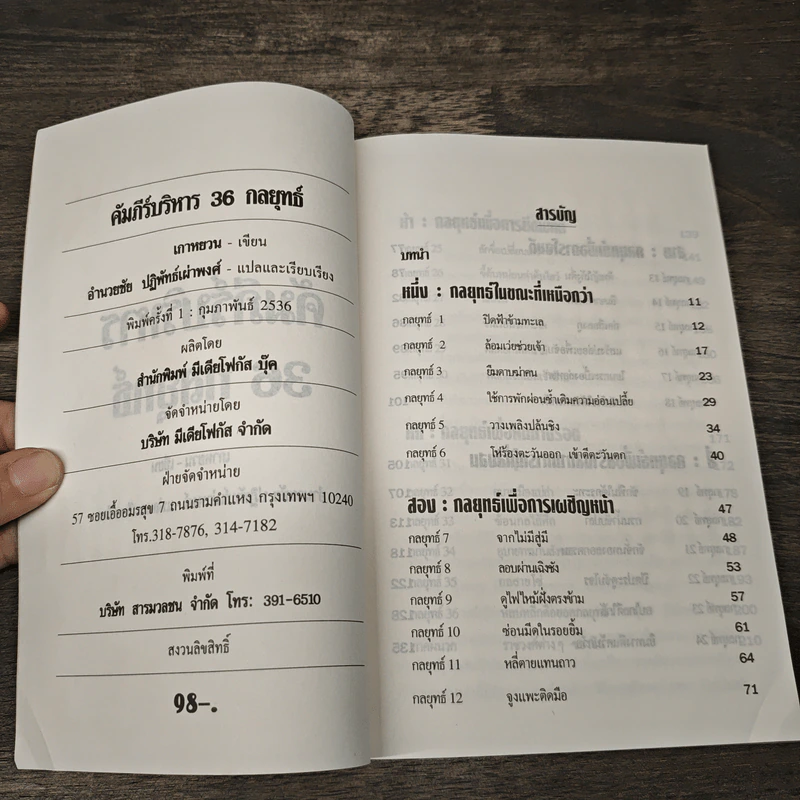 คัมภีร์บริหาร 36 กลยุทธ์
เกาหยวน - เขียน
อำนวยชัย ปฏิพัทธ์เผ่าพงศ์ - แปลและเรียบเรียง
พิมพ์ครั้งที่ 1 : กุมภาพันธ์ 2536
ผลิตโดย
สำนักพิมพ์ มีเดียโฟกัส บุ๊ค
จัดจำหน่ายโดย
บริษัท มีเดียโฟกัส จำกัด
ฝ่ายจัดจำหน่าย
57 ซอยเอื้ออมรสุข 7 ถนนรามคำแหง กรุงเทพฯ 10240
โทร.318-7876, 314-7182
พิมพ์ที่
บริษัท สารมวลชน จำกัด โทร: 391-6510
สงวนลิขสิทธิ์
98-.
สารบัญ
บทนำ
หนึ่ง : กลยุทธ์ในขณะที่เหนือกว่า 11
กลยุทธ์ 1 ปิดฟ้าข้ามทะเล 12
กลยุทธ์ 2 ล้อมเว่ยช่วยเจ้า 17
กลยุทธ์ 3 ยืมดาบฆ่าคน 23
กลยุทธ์ 4 ใช้การพักผ่อนซ้ำเติมความอ่อนเปลี้ย 29
กลยุทธ์ 5 วางเพลิงปล้นชิง 34
กลยุทธ์ 6 โห่ร้องตะวันออก เข้าตีตะวันตก 40
สอง : กลยุทธ์เพื่อการเผชิญหน้า 47
กลยุทธ์ 7 จากไม่มีสู่มี 48
กลยุทธ์ 8 ลอบผ่านเฉิงซัง 53
กลยุทธ์ 9 ดูไฟไหม้ฝั่งตรงข้าม 57
กลยุทธ์ 10 ซ่อนมีดในรอยยิ้ม 61
กลยุทธ์ 11 หลี่ตายแทนถาว 64
กลยุทธ์ 12 จูงแพะติดมือ 71